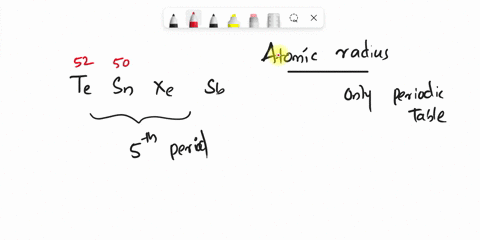 52 50
Te Sn Xe Sb
5th period
Atomic radius
Only Periodic
Table